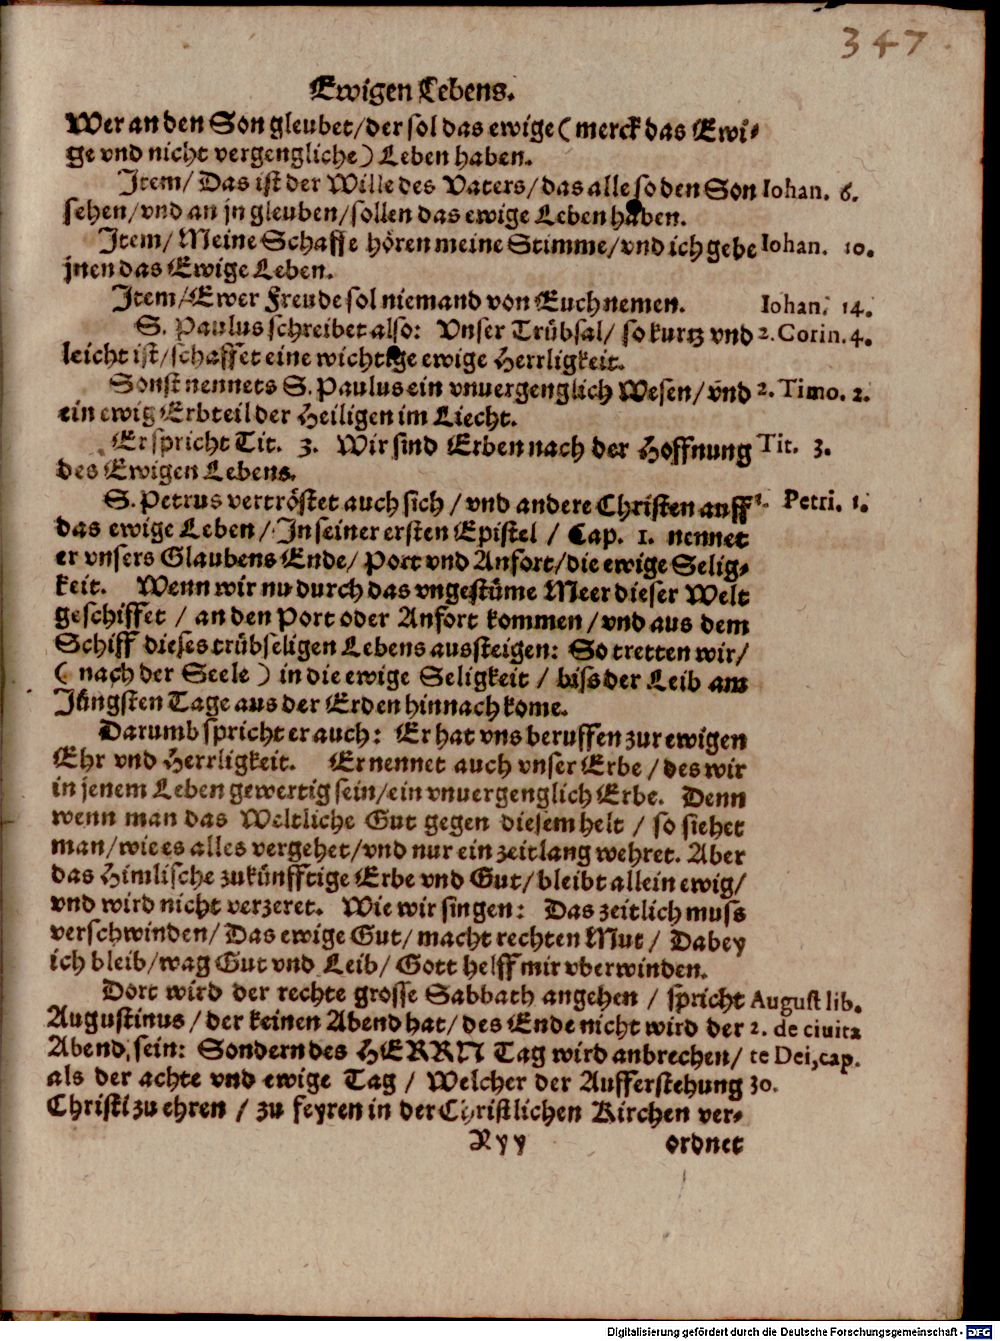 347
Ewigen Lebens.
Wer an den Son gleubet/der sol das ewige (merck das Ewi-
ge vnd nicht vergengliche) Leben haben.
Item/ Das ist der Wille des Vaters/das alle so den Son Iohan. 6.
sehen/vnd an jn gleuben/sollen das ewige Leben haben.
Item/ Meine Schaffe hören meine Stimme/vnd ich gebe Iohan. 10.
jnen das Ewige Leben.
Item/Ewer Freude sol niemand von Euch nemen. Iohan. 14.
S. Paulus schreibet also: Vnser Trübsal/ so kurtz vnd 2. Corin. 4.
leicht ist/schaffet eine wichtige ewige Herrligkeit.
Sonst nennets S. Paulus ein vnuergenglich Wesen/vnd 2. Timo. 2.
ein ewig Erbteil der Heiligen im Liecht.
Er spricht Tit. 3. Wir sind Erben nach der Hoffnung Tit. 3.
des Ewigen Lebens.
S. Petrus vertröstet auch sich / vnd andere Christen auff 1. Petri. 1.
das ewige Leben/ In seiner ersten Epistel / Cap. 1. nennet
er vnsers Glaubens Ende/ Port vnd Anfort/die ewige Selig-
keit. Wenn wir nu durch das vngestüme Meer dieser Welt
geschiffet / an den Port oder Anfort kommen/vnd aus dem
Schiff dieses trübseligen Lebens aussteigen: So tretten wir/
( nach der Seele ) in die ewige Seligkeit / biss der Leib am
Jüngsten Tage aus der Erden hinnach kome.
Darumb spricht er auch: Er hat vns beruffen zur ewigen
Ehr vnd Herrligkeit. Er nennet auch vnser Erbe/des wir
in jenem Leben gewertig sein/ein vnuergenglich Erbe. Denn
wenn man das Weltliche Gut gegen diesem helt / so siehet
man/wie es alles vergehet/vnd nur ein zeitlang wehret. Aber
das Himlische zukünfftige Erbe vnd Gut/bleibt allein ewig/
vnd wird nicht verzeret. Wie wir singen: Das zeitlich muss
verschwinden/Das ewige Gut/ macht rechten Mut/ Dabey
ich bleib/wag Gut vnd Leib/ Gott helff mir vberwinden.
Dort wird der rechte grosse Sabbath angehen / spricht August lib.
Augustinus/der keinen Abend hat/des Ende nicht wird der 2. de ciuita
Abend sein: Sondern des HERRN Tag wird anbrechen/ te Dei, cap.
als der achte vnd ewige Tag / Welcher der Aufferstehung 30.
Christi zu ehren / zu feyren in der Christlichen Kirchen ver-
Xyy ordnet
Digitalisierung gefördert durch die Deutsche Forschungsgemeinschaft - DFG